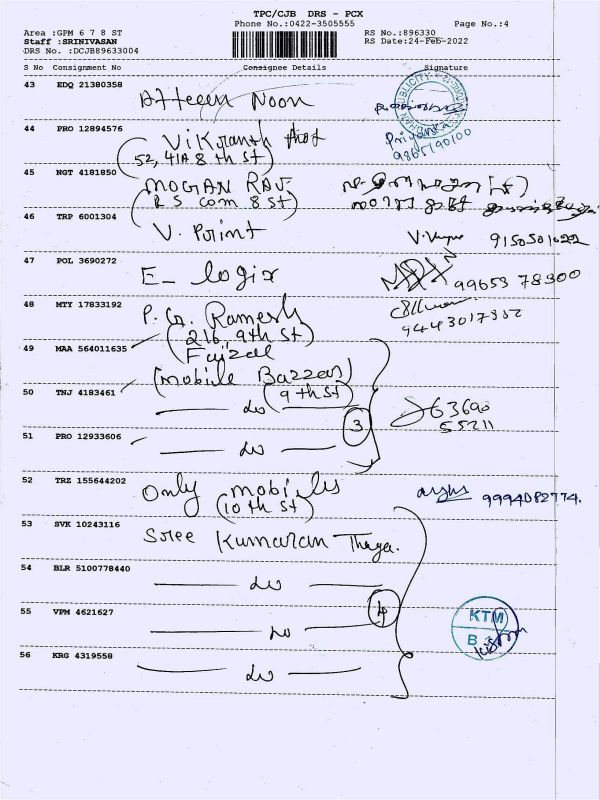 TPC/CJB DRS - PCX
Phone No.:0422-3505555
Page No.:4
Area :GPM 6 7 8 ST
RS No.:896330
Staff :SRINIVASAN
RS Date:24-Feb-2022
DRS No. :DCJB89633004
S No Consignment No Consignee Details Signature
43 EDQ 21380358
Noon
Priyanka
9865190100
44 PRO 12894576
Vikranth
52, 41A 8 th st
45 NGT 4181850
MOGAN RAJ
R S com 8 st
46 TRP 6001304
V. Point
9150501622
47 POL 3690272
E- logix
99653 78300
48 MTY 17833192
P. G. Ramesh
216, 9th st
9443017352
49 MAA 564011635
Faizal
mobile Bazzar
9 th st
50 TNJ 4183461
do
3
63690
55211
51 PRO 12933606
do
52 TRZ 155644202
Only mobiles
10 th st
9994082774.
53 SVK 10243116
Sree Kumaran Thaga.
54 BLR 5100778440
do
4
55 VPM 4621627
do
KTM
56 KRG 4319558
do